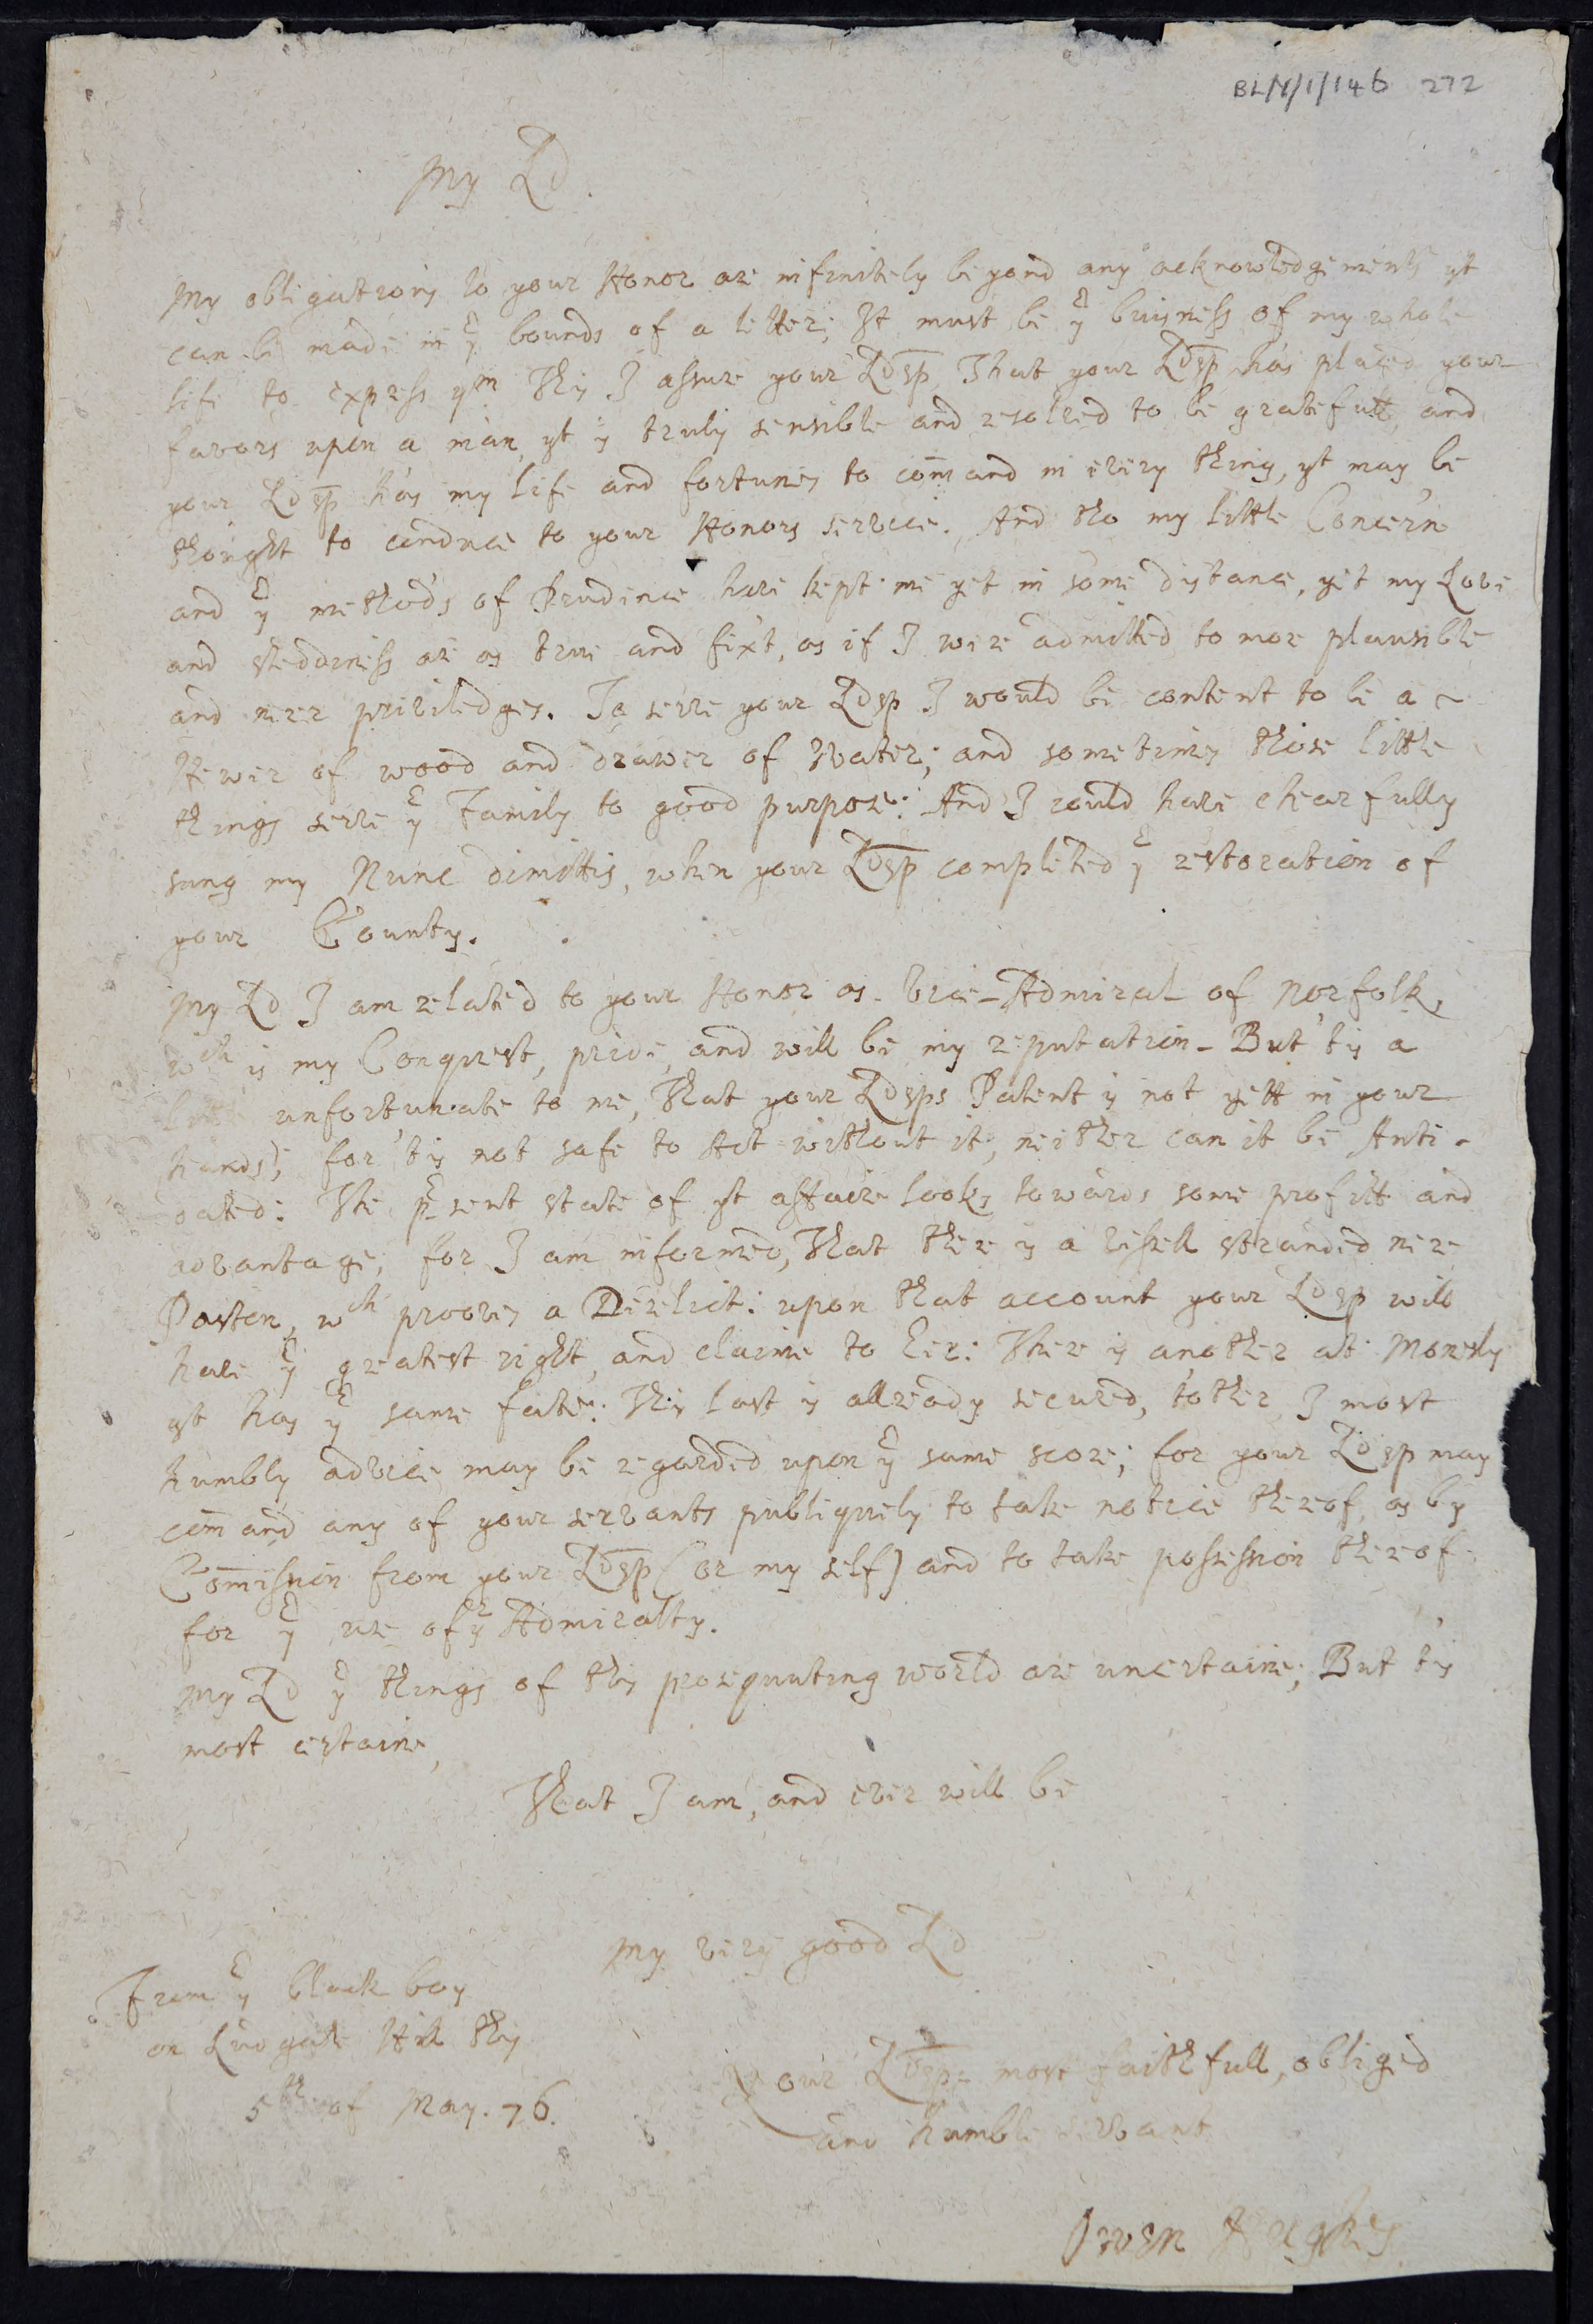 BL/Y/1/146 272
My Ld.
My obligations to your Honor are infinitely beyond any acknowledgements yt
can be made in ye bounds of a letter; It must be ye buisness of my whole
life to express ym This I assure your Ldsp, That your Ldsp has placed your
favors upon a man, yt is truly sensible and resolved to be gratefull, and
your Ldsp has my life and fortunes to com̄and in every thing, yt may be
thought to conduce to your Honors service. And tho my little Concern
and ye methods of Prudence have kept me yet in some distance, yet my Love
and steddiness are as true and fixt, as if I were admitted to more plausible
and nerer priviledges. To serve your Ldsp I would be content to be a
Hewer of wood and drawer of Water; and sometimes those little
things serve ye Family to good purpose: And I could have chearfully
sung my Nunc dimittis, when your Ldsp completed ye restoration of
your County.
My Ld I am related to your Honor as Vice-Admiral of Norfolk,
wch is my Conquest, pride, and will be my reputation - But 'tis a
little unfortunate to me, That your Ldsps Patent is not yett in your
hands; for 'tis not safe to Act without it, neither can it be Anti-
dated: The p̱sent state of yt affaire looks towards some profitt and
advantage; for I am informed, That there is a vissell stranded nere
Paston, wch prooves a Direlict: upon that account your Ldsp will
have ye greatest right, and claime to her: There is another at Monesly
yt has ye same fate: This last is allready secured, tother I most
humbly advice may be regarded upon ye same score; for your Ldsp may
com̄and any of your servants publiquely to take notice therof, as by
Com̄ission from your Ldsp (or my self) and to take possession therof
for ye use of ye Admiralty.
My Ld ye things of this prosequuting world are uncertaine; But 'tis
most certaine,
That I am, and ever will be
My very good Ld
From ye black boy
on Ludgate Hill this
5th of May. 76.
Your Ldsps most faithfull, obliged
and humble servant
Owen Hughes